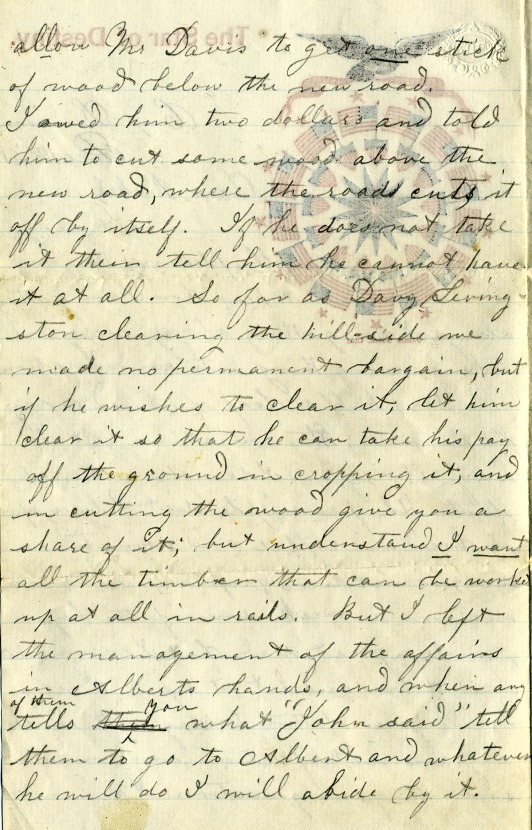 The Star of Destiny.
allow Mr Davis to get one stick
of wood below the new road.
I owed him two dollars and told
him to cut some wood above the
new road, where the roads cuts it
off by itself. If he does not take
it their tell him he cannot have
it at all. So far as Davy Living-
ston clearing the hill-side we
made no permanent bargain, but
if he wishes to clear it, let him
clear it so that he can take his pay
off the ground in cropping it, and
in cutting the wood give you a
share of it; but understand I want
all the timber that can be worke
up at all in rails. But I left
the management of the affairs
in Alberts hands, and when any
of them you
tells them what "John said" tell
them to go to Albert and whatever
he will do I will abide by it.